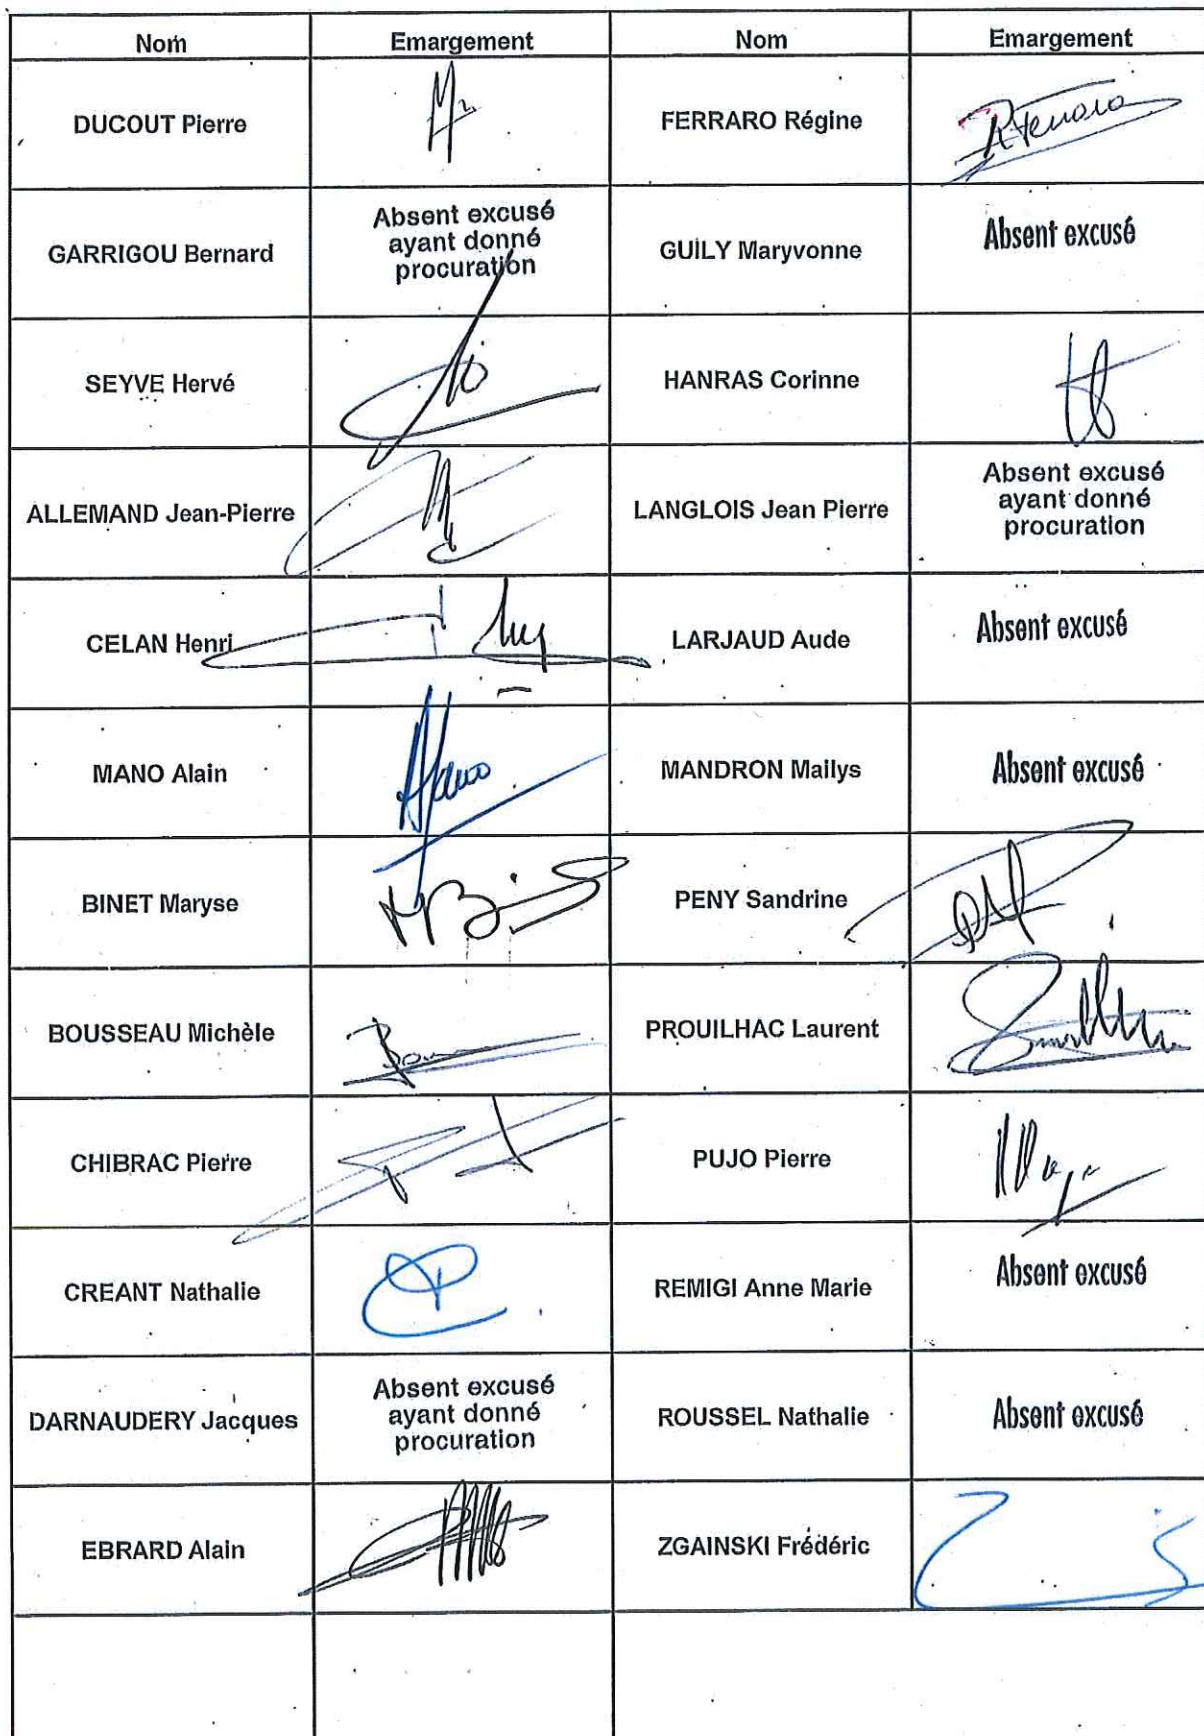 Nom Emargement Nom Emargement
DUCOUT Pierre FERRARO Régine RFerraro
GARRIGOU Bernard Absent excusé
ayant donné
procuration GUILY Maryvonne Absent excusé
SEYVE Hervé HANRAS Corinne
ALLEMAND Jean-Pierre LANGLOIS Jean Pierre Absent excusé
ayant donné
procuration
CELAN Henri LARJAUD Aude Absent excusé
MANO Alain MANDRON Mailys Absent excusé
BINET Maryse PENY Sandrine
BOUSSEAU Michèle PROUILHAC Laurent
CHIBRAC Pierre PUJO Pierre
CREANT Nathalie REMIGI Anne Marie Absent excusé
DARNAUDERY Jacques Absent excusé
ayant donné
procuration ROUSSEL Nathalie Absent excusé
EBRARD Alain ZGAINSKI Frédéric